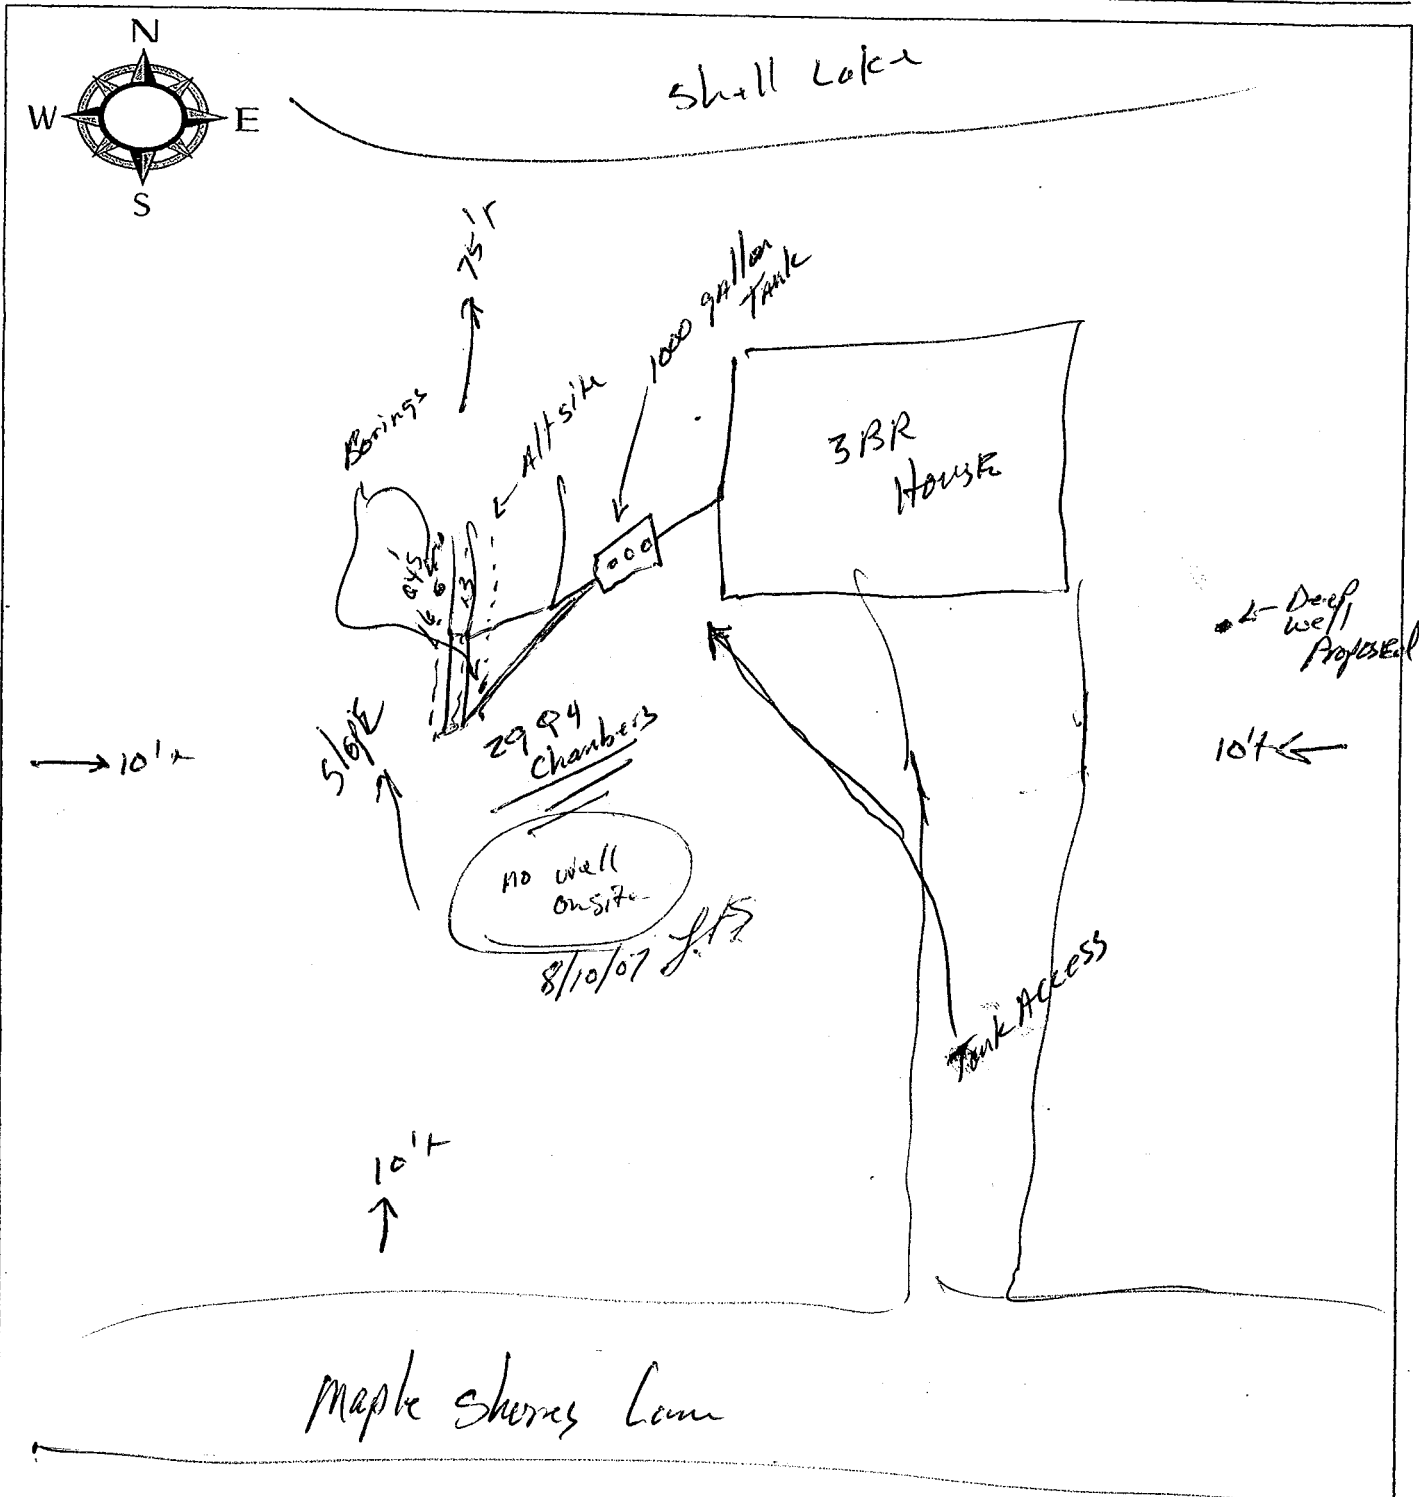 N
W E
S
Shell Lake
75'+
1000 gallon
Tank
Alt site
Borings
3 BR
House
← Deep
well
Proposed
10'+
10'+
Slope
29 Q4
Chambers
no well
onsite
8/10/07
Tank Access
10'+
Maple Shores Lane